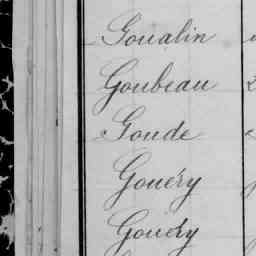 Goualin
Goubeau
Goude
Gouéry
Gouéry